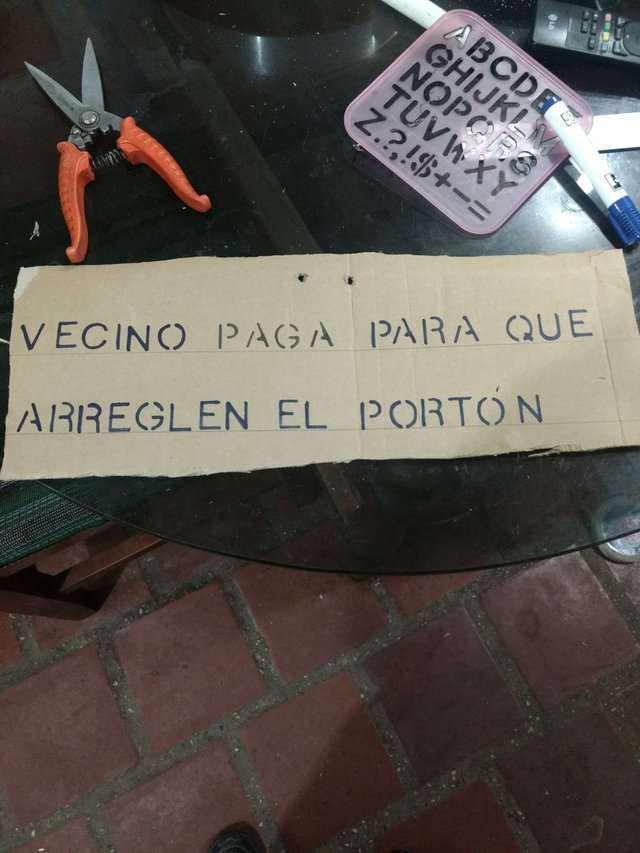 ABCDE
GHIJKL
NOPQRS
TUVWXY
Z?,!$+-=
VECINO PAGA PARA QUE
ARREGLEN EL PORTÓN